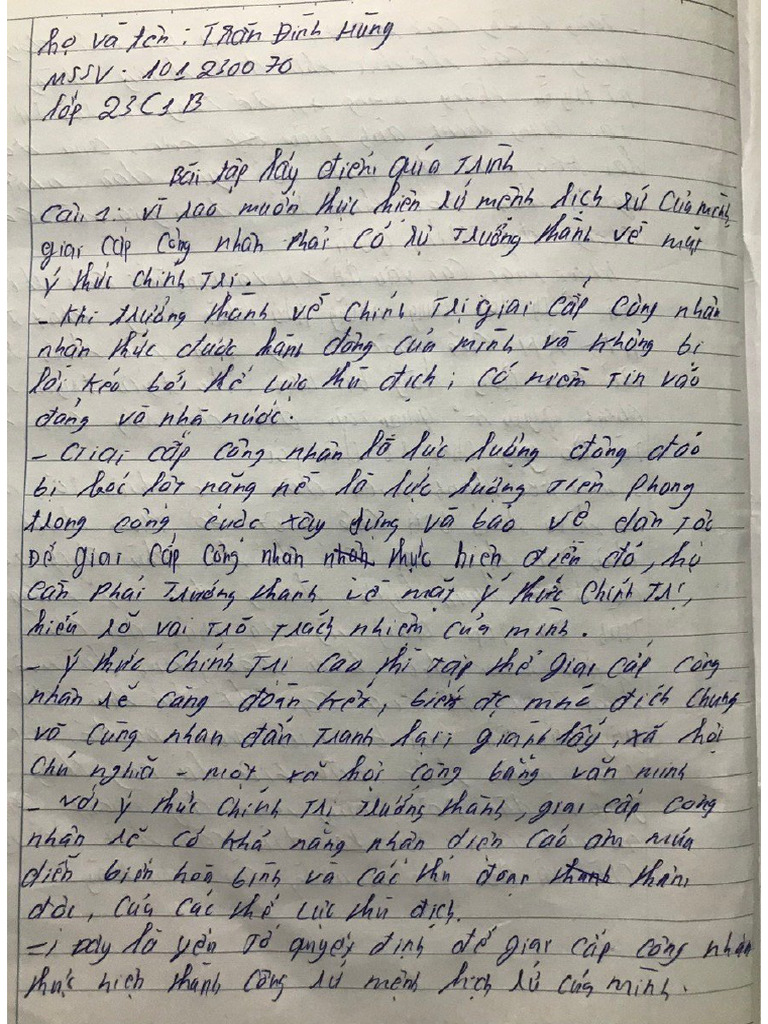 Họ và tên : Trần Đình Hùng
MSSV : 101230070
lớp 23C1B
Bài tập lấy điểm quá trình
Câu 1: vì sao muốn thực hiện sứ mệnh lịch sử của mình,
giai cấp công nhân phải có sự trưởng thành về mặt
ý thức chính trị.
- Khi trưởng thành về chính trị giai cấp công nhân
nhận thức được hành động của mình và không bị
lôi kéo bởi thế lực thù địch; có niềm tin vào
đảng và nhà nước.
- Giai cấp công nhân là lực lượng đông đảo
bị bóc lột nặng nề là lực lượng tiên phong
trong công cuộc xây dựng và bảo vệ dân tộc
Để giai cấp công nhân thực hiện điều đó, họ
cần phải trưởng thành về mặt ý thức chính trị,
hiểu rõ vai trò trách nhiệm của mình.
- Ý thức chính trị cao thì tập thể giai cấp công
nhân sẽ càng đoàn kết, biết đc mục đích chung
và cùng nhau đấu tranh lại, giành lấy, xã hội
chủ nghĩa - một xã hội công bằng văn minh
- với ý thức chính trị trưởng thành, giai cấp công
nhân sẽ có khả năng nhận diện cao âm mưu
diễn biến hoà bình và các thủ đoạn thâm
độc, của các thế lực thù địch.
=> đây là yếu tố quyết định để giai cấp công nhân
thực hiện thành công sứ mệnh lịch sử của mình.